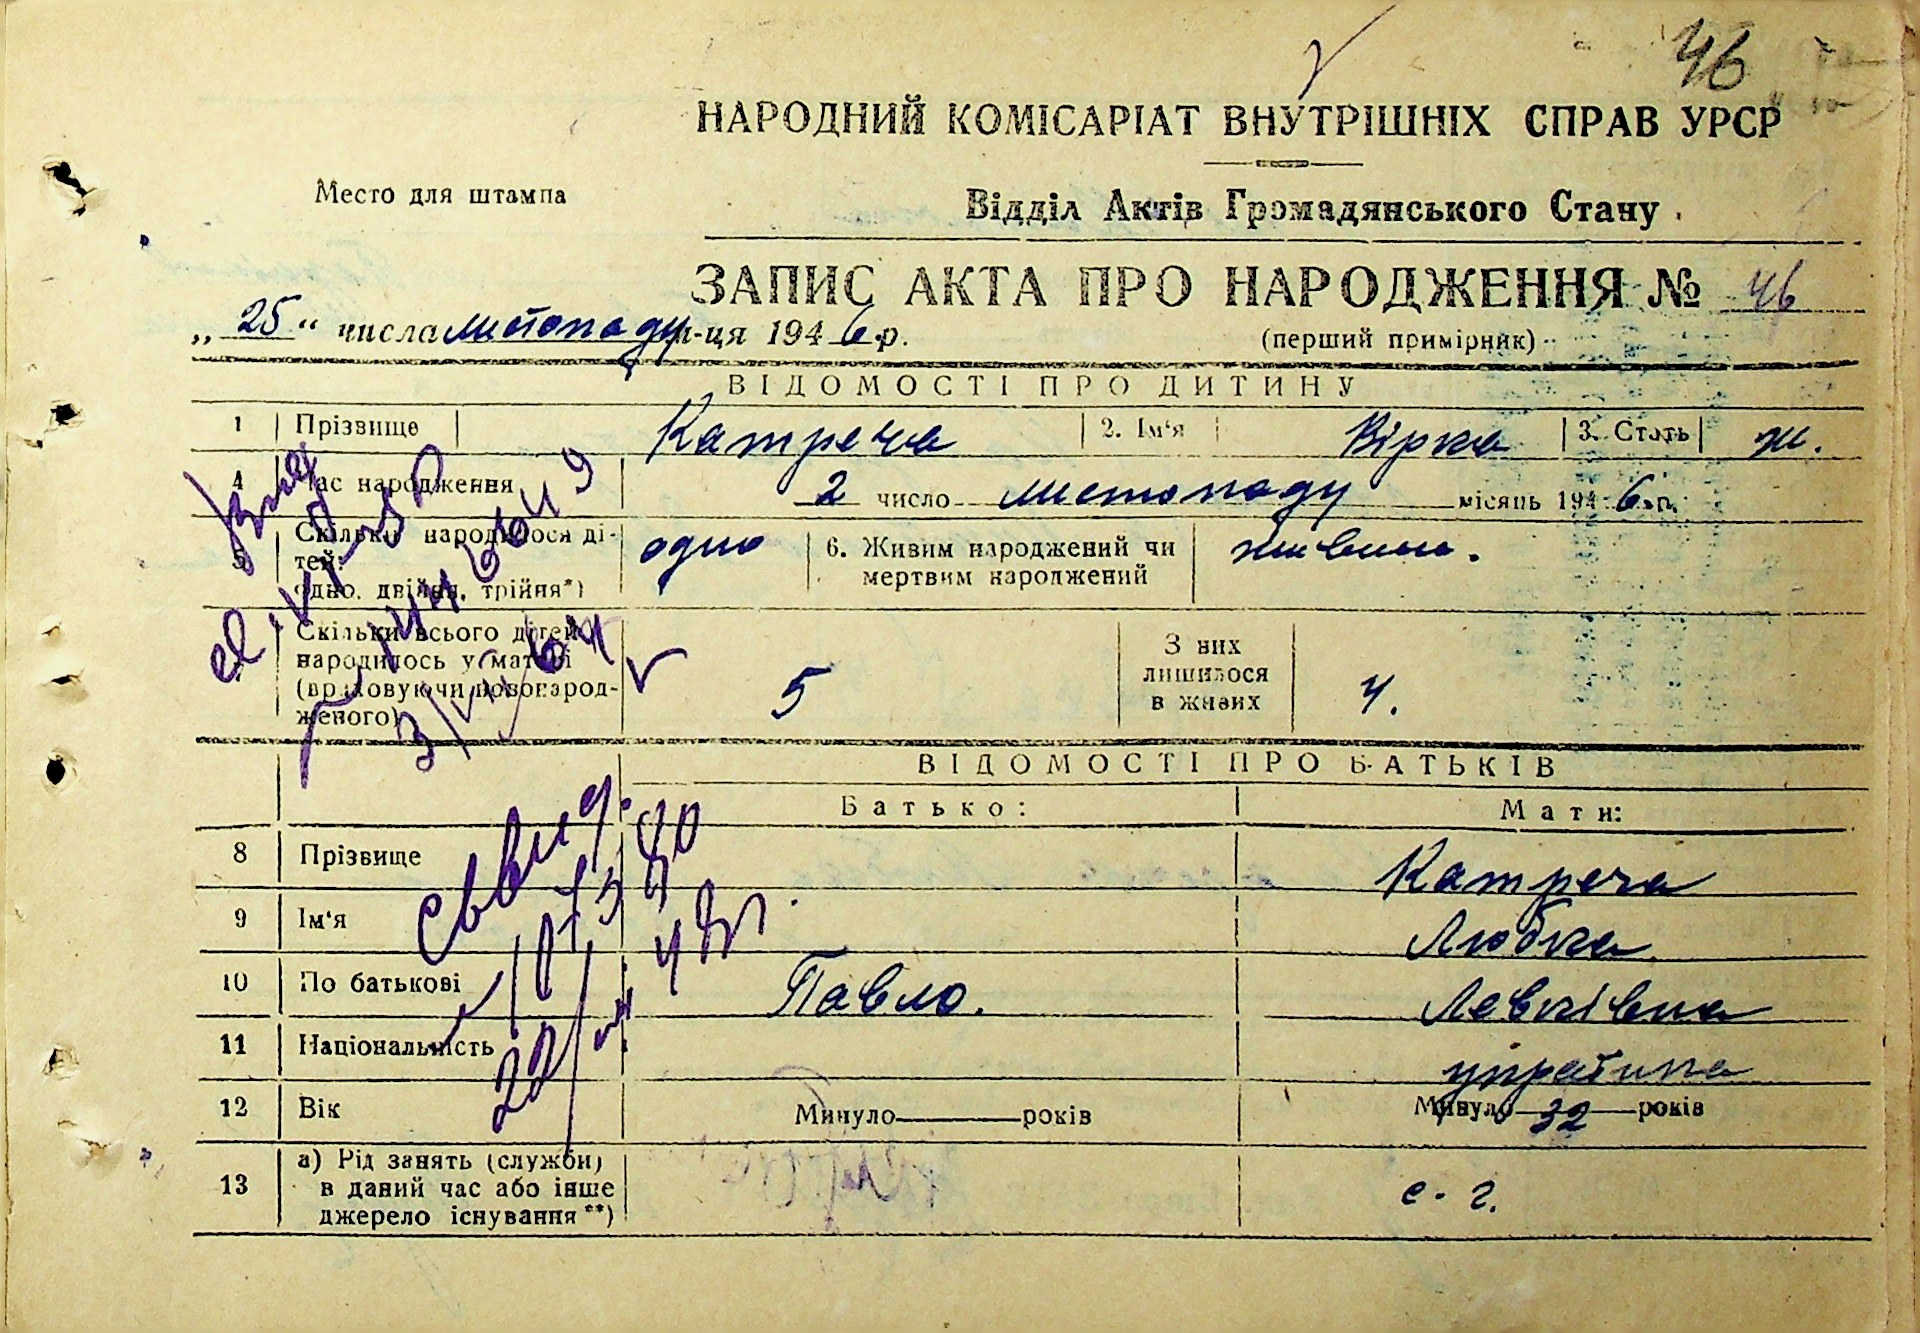 46
НАРОДНИЙ КОМІСАРІАТ ВНУТРІШНІХ СПРАВ УРСР
Место для штампа
Відділ Актів Громадянського Стану
ЗАПИС АКТА ПРО НАРОДЖЕННЯ № 46
„ 25 “ числа листопаду м-ця 194 6 р.
(перший примірник)
ВІДОМОСТІ ПРО ДИТИНУ
1 Прізвище Катреча 2. Ім'я Вірка 3. Стать ж.
4 Час народження 2 число листопаду місяць 194 6 р.
5 Скільки народилося дітей: одно, двійня, трійня*) одно 6. Живим народжений чи мертвим народжений живим.
Скільки всього дітей народилось у матері (враховуючи новонародженого) 5 З них лишилося в живих 4.
ВІДОМОСТІ ПРО БАТЬКІВ
Батько: Мати:
8 Прізвище Катреча
9 Ім'я Любка
10 По батькові Павло. Левківна
11 Національність
12 Вік Минуло років Минуло 32 років
13 а) Рід занять (служби) в даний час або інше джерело існування**) с-г.